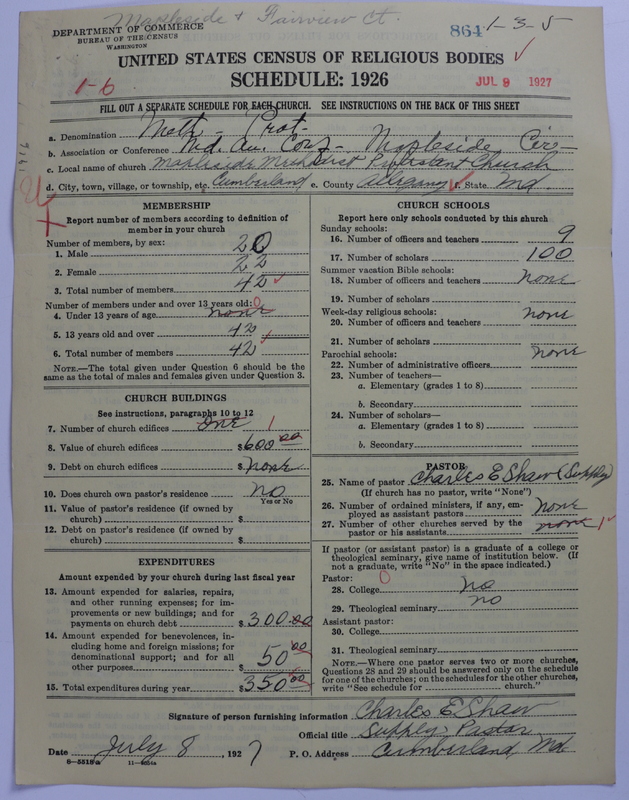 Mapleside & Fairview Ct.
DEPARTMENT OF COMMERCE
BUREAU OF THE CENSUS
WASHINGTON
864 1-3-5
UNITED STATES CENSUS OF RELIGIOUS BODIES
SCHEDULE: 1926
1-6
JUL 9 1927
FILL OUT A SEPARATE SCHEDULE FOR EACH CHURCH. SEE INSTRUCTIONS ON THE BACK OF THIS SHEET
1916
a. Denomination Meth - Prot-
b. Association or Conference Md. An. Conf- Mapleside Circ-
c. Local name of church Mapleside Methodist Protestant Church
d. City, town, village, or township, etc. Cumberland e. County Allegany f. State Md.
MEMBERSHIP
Report number of members according to definition of
member in your church
Number of members, by sex:
1. Male 20
2. Female 22
3. Total number of members 42
Number of members under and over 13 years old:
4. Under 13 years of age none 0
5. 13 years old and over 42
6. Total number of members 42
NOTE.—The total given under Question 6 should be the
same as the total of males and females given under Question 3.
CHURCH BUILDINGS
See instructions, paragraphs 10 to 12
7. Number of church edifices one 1
8. Value of church edifices $600.00
9. Debt on church edifices $ none
10. Does church own pastor's residence No
Yes or No
11. Value of pastor's residence (if owned by
church) $
12. Debt on pastor's residence (if owned by
church) $
EXPENDITURES
Amount expended by your church during last fiscal year
13. Amount expended for salaries, repairs,
and other running expenses; for im-
provements or new buildings; and for
payments on church debt $300.00
14. Amount expended for benevolences, in-
cluding home and foreign missions; for
denominational support; and for all
other purposes 50.00
15. Total expenditures during year $350.00
CHURCH SCHOOLS
Report here only schools conducted by this church
Sunday schools:
16. Number of officers and teachers 9
17. Number of scholars 100
Summer vacation Bible schools:
18. Number of officers and teachers none
19. Number of scholars
Week-day religious schools:
20. Number of officers and teachers none
21. Number of scholars
Parochial schools:
22. Number of administrative officers none
23. Number of teachers—
a. Elementary (grades 1 to 8)
b. Secondary
24. Number of scholars—
a. Elementary (grades 1 to 8)
b. Secondary
PASTOR
25. Name of pastor Charles E Shaw (Supply)
(If church has no pastor, write "None")
26. Number of ordained ministers, if any, em-
ployed as assistant pastors none
27. Number of other churches served by the
pastor or his assistants none 1
If pastor (or assistant pastor) is a graduate of a college or
theological seminary, give name of institution below. (If
not a graduate, write "No" in the space indicated.)
Pastor: 0
28. College no
29. Theological seminary no
Assistant pastor:
30. College
31. Theological seminary
NOTE.—Where one pastor serves two or more churches,
Questions 28 and 29 should be answered only on the schedule
for one of the churches; on the schedules for the other churches,
write "See schedule for church."
Signature of person furnishing information Charles E Shaw
Official title Supply Pastor
Date July 8, 1927 P. O. Address Cumberland, Md